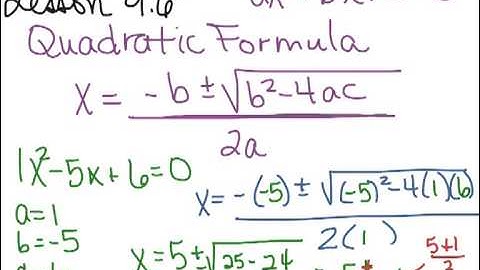 Lesson 9.6
Quadratic Formula
x = -b ± √b²-4ac
2a
1x²-5x+6=0
a=1
b=-5
x = -(-5) ± √(-5)²-4(1)(6)
2(1)
x = 5 ± √25-24
5 ±
5+1
2